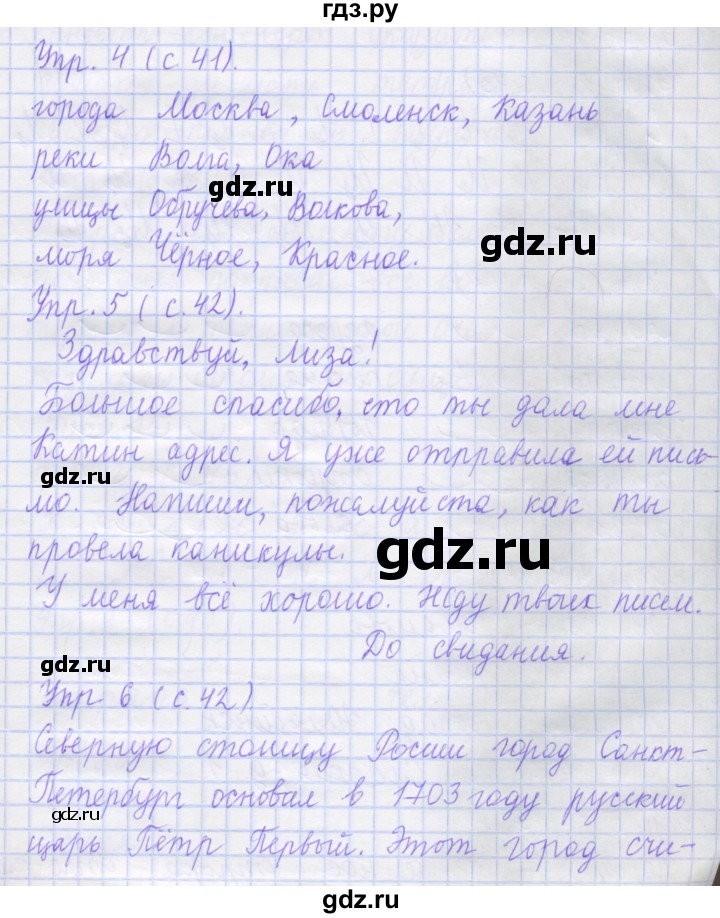 гдз.ру
Упр. 4 (с. 41).
города Москва, Смоленск, Казань
реки Волга, Ока
gdz.ru
gdz.ru
улицы Обручева, Волкова,
моря Чёрное, Красное.
Упр. 5 (с. 42).
Здравствуй, Лиза!
Большое спасибо, что ты дала мне
Катин адрес. Я уже отправила ей пись-
gdz.ru
мо. Напиши, пожалуйста, как ты
gdz.ru
провела каникулы.
У меня всё хорошо. Жду твоих писем.
До свидания.
gdz.ru
Упр 6 (с. 42)
Северную столицу России город Санкт-
Петербург основал в 1703 году русский
gdz.ru
царь Пётр Первый. Этот город счи-
gdz.ru